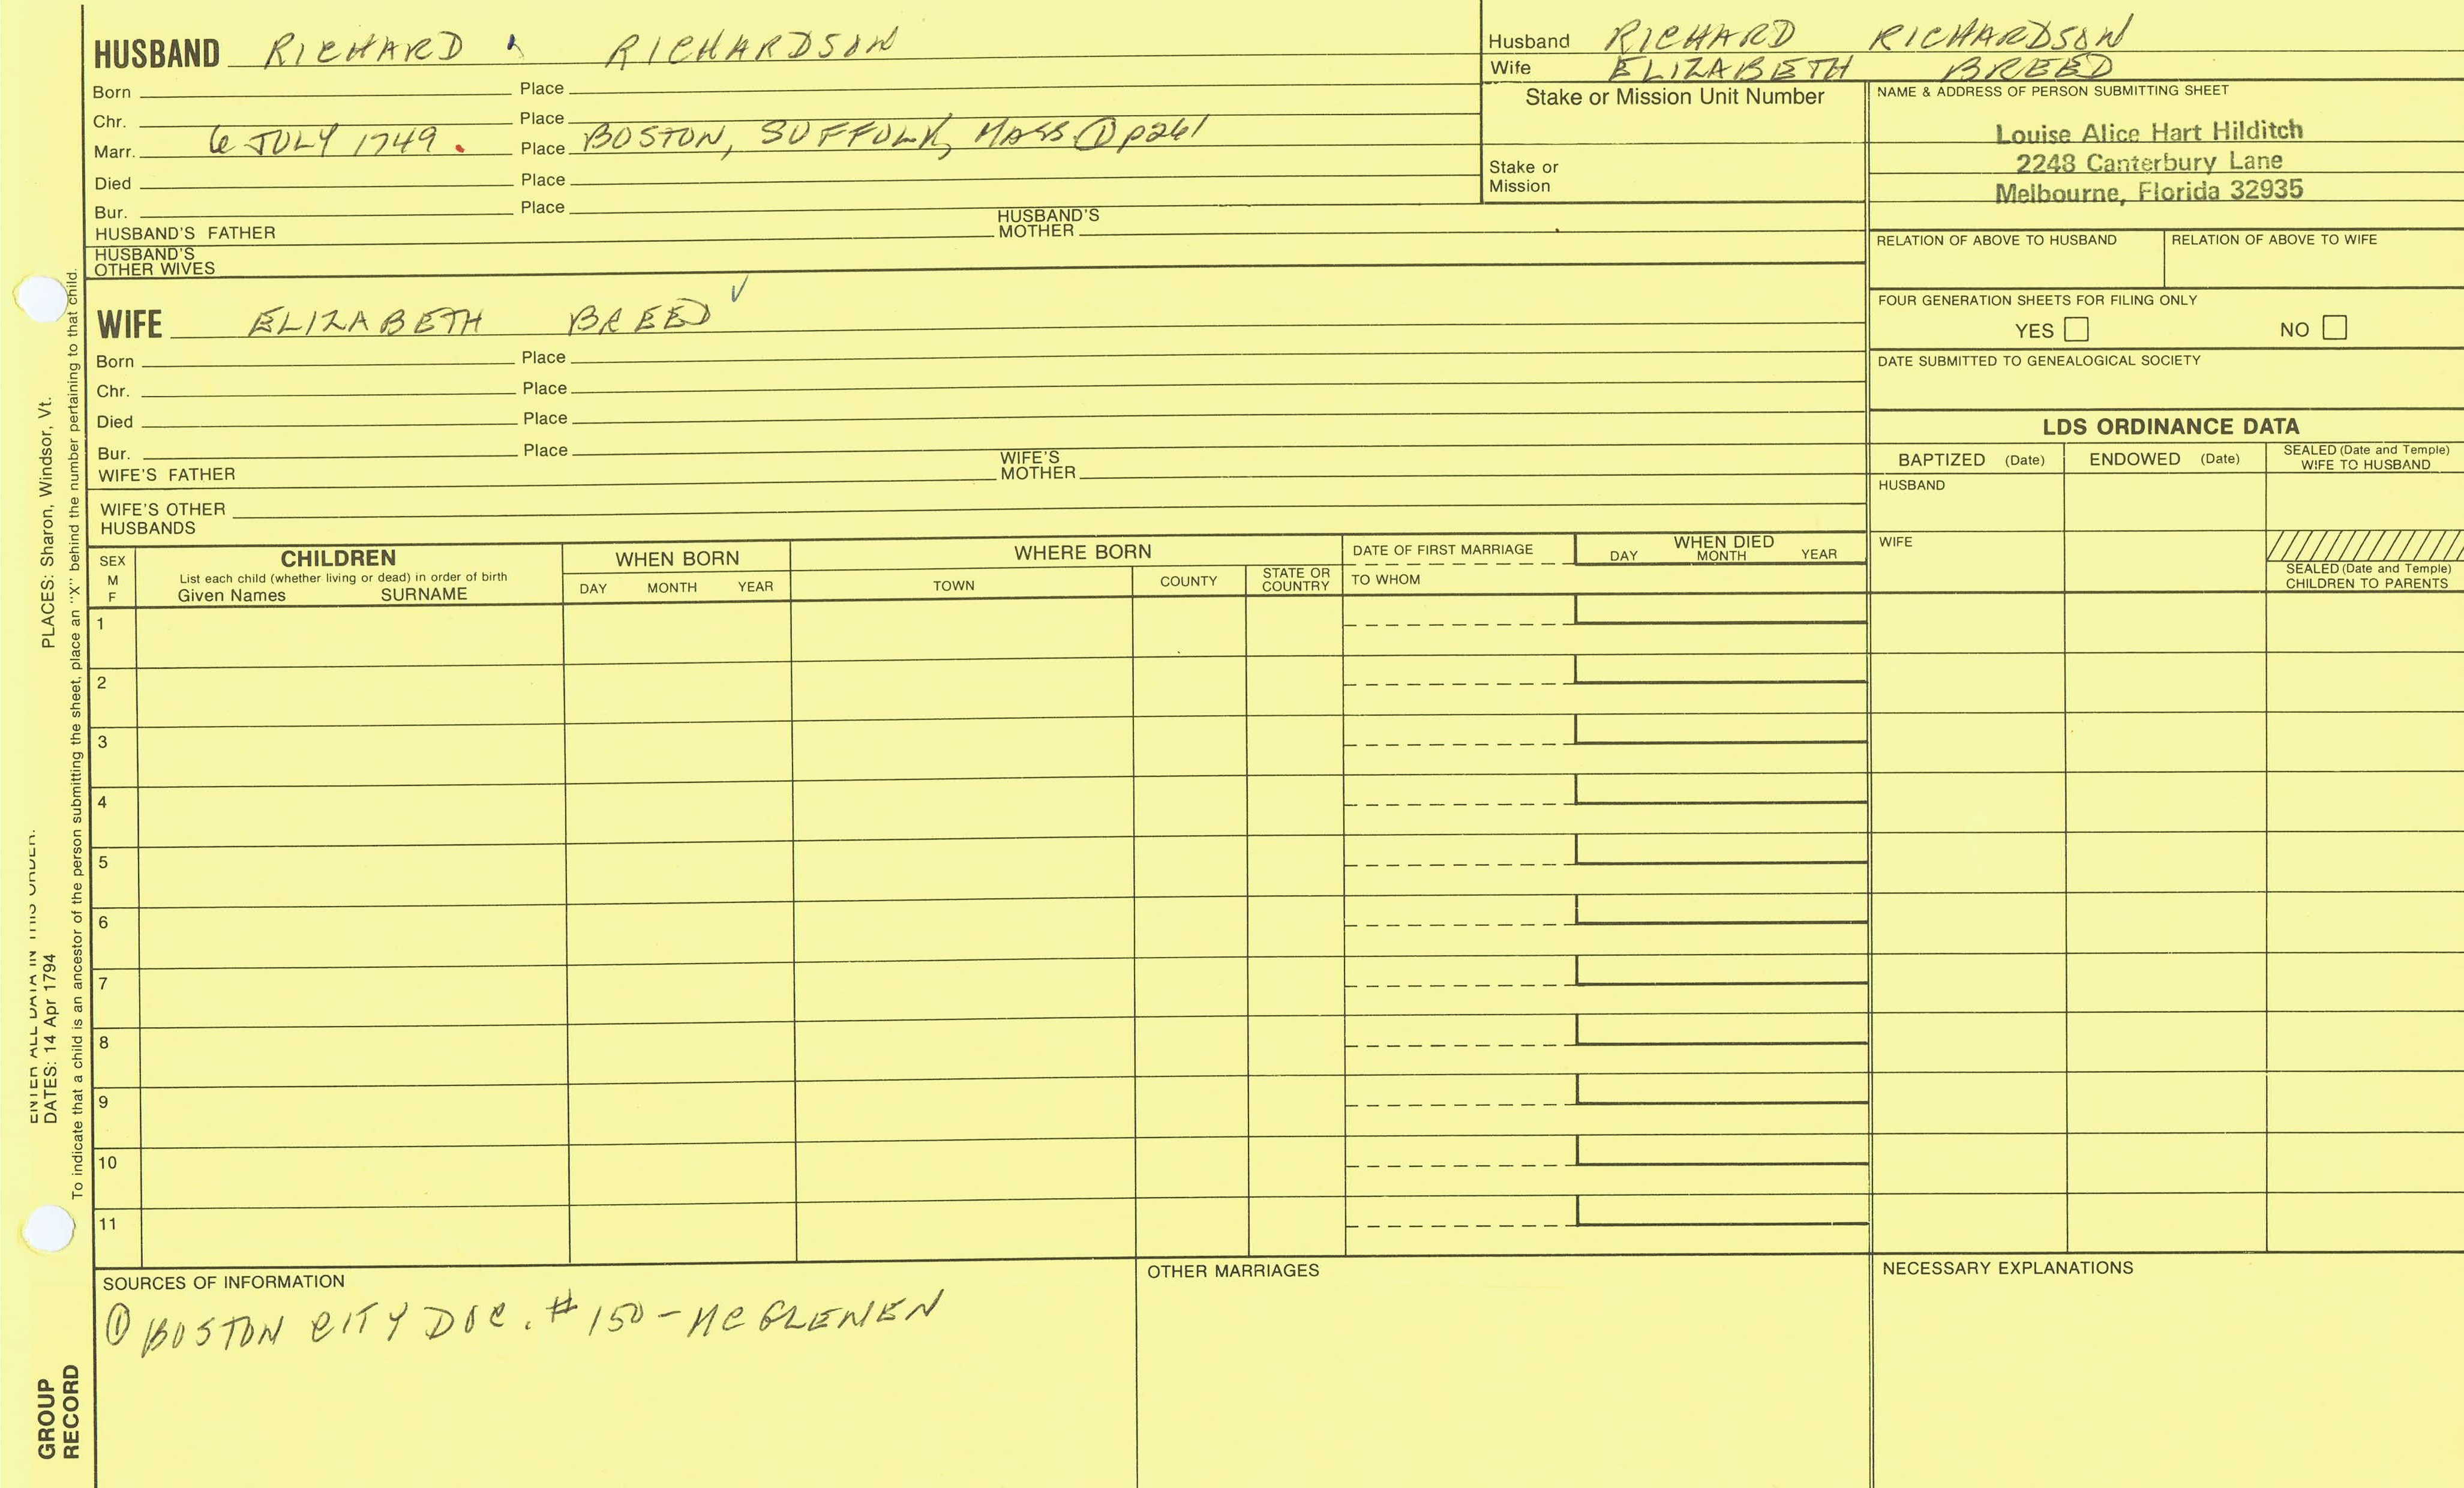 HUSBAND RICHARD RICHARDSON
Born Place
Chr. Place
Marr. 6 JULY 1749. Place BOSTON, SUFFOLK, MASS ① p261
Died Place
Bur. Place
HUSBAND'S FATHER HUSBAND'S MOTHER
HUSBAND'S OTHER WIVES
Husband RICHARD RICHARDSON
Wife ELIZABETH BREED
Stake or Mission Unit Number
Stake or Mission
NAME & ADDRESS OF PERSON SUBMITTING SHEET
Louise Alice Hart Hilditch
2248 Canterbury Lane
Melbourne, Florida 32935
RELATION OF ABOVE TO HUSBAND RELATION OF ABOVE TO WIFE
FOUR GENERATION SHEETS FOR FILING ONLY
YES NO
DATE SUBMITTED TO GENEALOGICAL SOCIETY
WIFE ELIZABETH BREED √
Born Place
Chr. Place
Died Place
Bur. Place
WIFE'S FATHER WIFE'S MOTHER
WIFE'S OTHER HUSBANDS
LDS ORDINANCE DATA
BAPTIZED (Date) ENDOWED (Date) SEALED (Date and Temple) WIFE TO HUSBAND
HUSBAND
WIFE
SEALED (Date and Temple) CHILDREN TO PARENTS
SEX M F
CHILDREN
List each child (whether living or dead) in order of birth
Given Names SURNAME
WHEN BORN
DAY MONTH YEAR
WHERE BORN
TOWN COUNTY STATE OR COUNTRY
DATE OF FIRST MARRIAGE
TO WHOM
WHEN DIED
DAY MONTH YEAR
1
2
3
4
5
6
7
8
9
10
11
SOURCES OF INFORMATION
① BOSTON CITY DOC. # 150 - MCGLENEN
OTHER MARRIAGES
NECESSARY EXPLANATIONS
ENTER ALL DATA IN THIS ORDER.
DATES: 14 Apr 1794 PLACES: Sharon, Windsor, Vt.
To indicate that a child is an ancestor of the person submitting the sheet, place an "X" behind the number pertaining to that child.
GROUP
RECORD